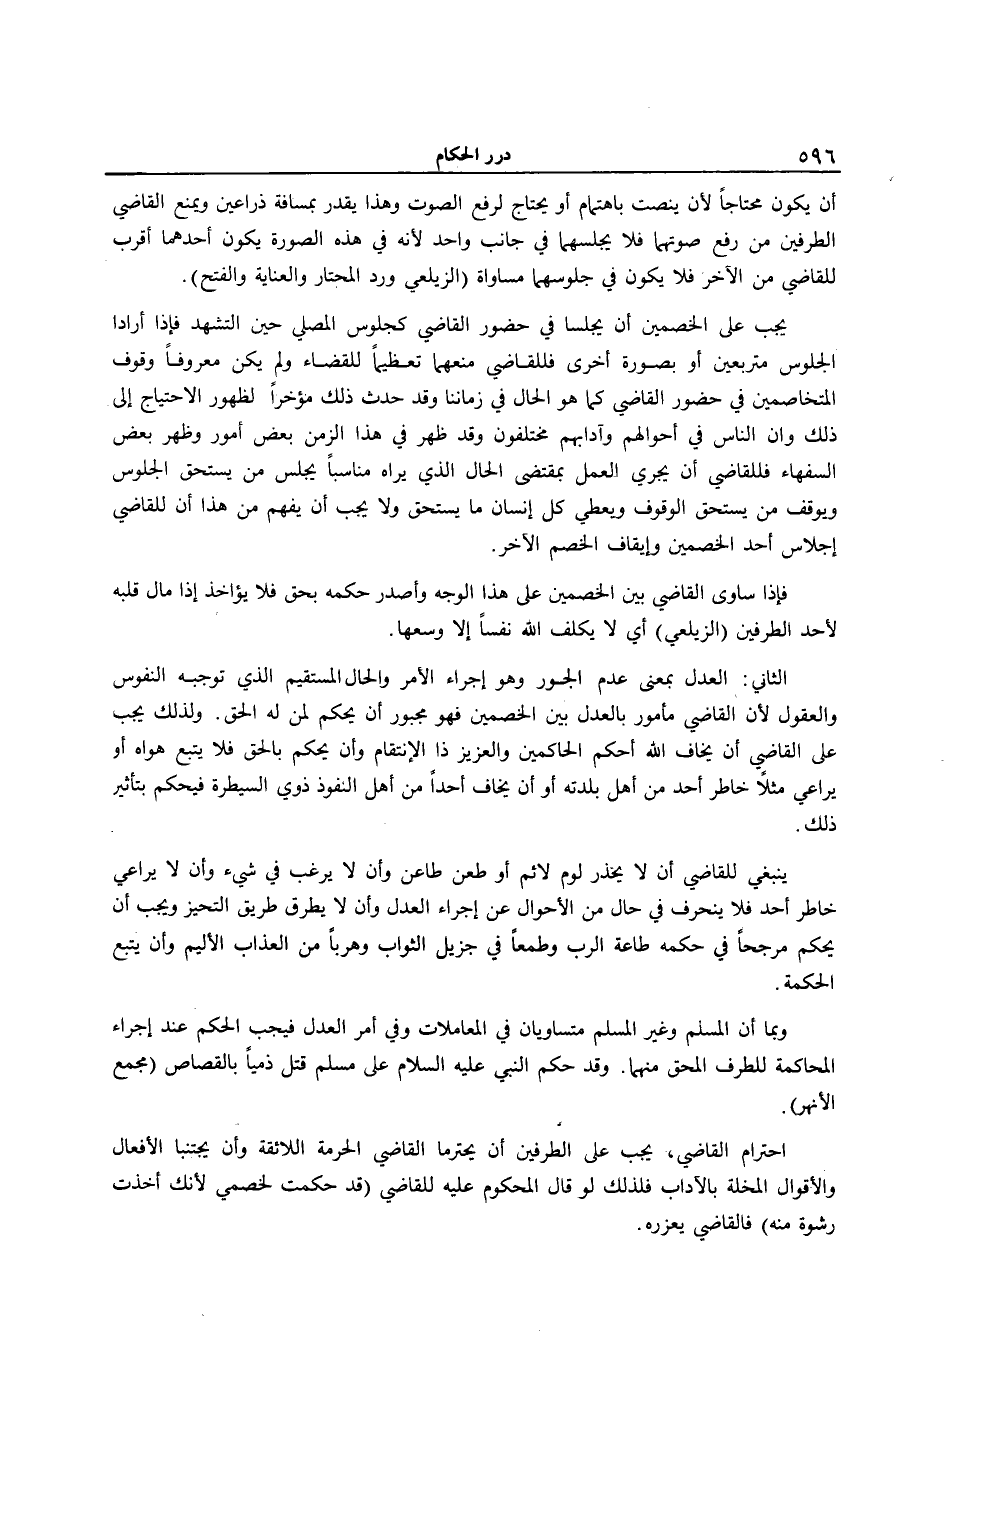 ٥٩٦ درر الحكام
أن يكون محتاجاً لأن ينصت باهتمام أو يحتاج لرفع الصوت وهذا يقدر بمسافة ذراعين ويمنع القاضي
الطرفين من رفع صوتهما فلا يجلسهما في جانب واحد لأنه في هذه الصورة يكون أحدهما أقرب
للقاضي من الآخر فلا يكون في جلوسهما مساواة (الزيلعي ورد المحتار والعناية والفتح).
يجب على الخصمين أن يجلسا في حضور القاضي كجلوس المصلي حين التشهد فإذا أرادا
الجلوس متربعين أو بصورة أخرى فللقاضي منعهما تعظيماً للقضاء ولم يكن معروفاً وقوف
المتخاصمين في حضور القاضي كما هو الحال في زماننا وقد حدث ذلك مؤخراً لظهور الاحتياج إلى
ذلك وان الناس في أحوالهم وآدابهم مختلفون وقد ظهر في هذا الزمن بعض أمور وظهر بعض
السفهاء فللقاضي أن يجري العمل بمقتضى الحال الذي يراه مناسباً يجلس من يستحق الجلوس
ويوقف من يستحق الوقوف ويعطي كل إنسان ما يستحق ولا يجب أن يفهم من هذا أن للقاضي
إجلاس أحد الخصمين وإيقاف الخصم الآخر.
فإذا ساوى القاضي بين الخصمين على هذا الوجه وأصدر حكمه بحق فلا يؤاخذ إذا مال قلبه
لأحد الطرفين (الزيلعي) أي لا يكلف الله نفساً إلا وسعها.
الثاني: العدل بمعنى عدم الجور وهو إجراء الأمر والحال المستقيم الذي توجبه النفوس
والعقول لأن القاضي مأمور بالعدل بين الخصمين فهو مجبور أن يحكم لمن له الحق. ولذلك يجب
على القاضي أن يخاف الله أحكم الحاكمين والعزيز ذا الإنتقام وأن يحكم بالحق فلا يتبع هواه أو
يراعي مثلًا خاطر أحد من أهل بلدته أو أن يخاف أحداً من أهل النفوذ ذوي السيطرة فيحكم بتأثير
ذلك.
ينبغي للقاضي أن لا يحذر لوم لائم أو طعن طاعن وأن لا يرغب في شيء وأن لا يراعي
خاطر أحد فلا ينحرف في حال من الأحوال عن إجراء العدل وأن لا يطرق طريق التحيز ويجب أن
يحكم مرجحاً في حكمه طاعة الرب وطمعاً في جزيل الثواب وهرباً من العذاب الأليم وأن يتبع
الحكمة.
وبما أن المسلم وغير المسلم متساويان في المعاملات وفي أمر العدل فيجب الحكم عند إجراء
المحاكمة للطرف المحق منهما. وقد حكم النبي عليه السلام على مسلم قتل ذمياً بالقصاص (مجمع
الأنهر).
احترام القاضي، يجب على الطرفين أن يحترما القاضي الحرمة اللائقة وأن يجتنبا الأفعال
والأقوال المخلة بالآداب فلذلك لو قال المحكوم عليه للقاضي (قد حكمت لخصمي لأنك أخذت
رشوة منه) فالقاضي يعزره.